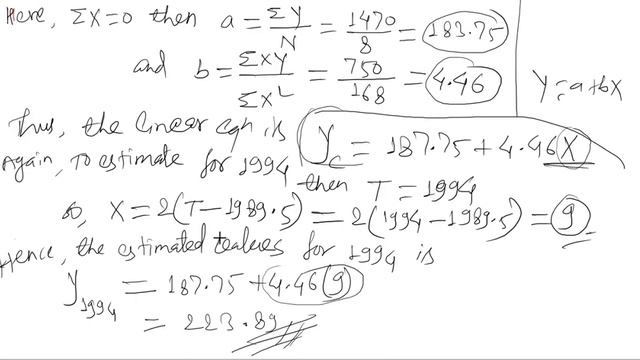 Here, ΣX=0 then a = ΣY/N = 1470/8 = 183.75
and b = ΣXY/ΣX² = 750/168 = 4.46
Y = a+bX
Thus, the linear eqn is Yc = 187.75 + 4.46X
Again, To estimate for 1994 then T = 1994
so, X = 2(T-1989.5) = 2(1994-1989.5) = 9
Hence, the estimated values for 1994 is
Y1994 = 187.75 + 4.46(9)
= 223.89